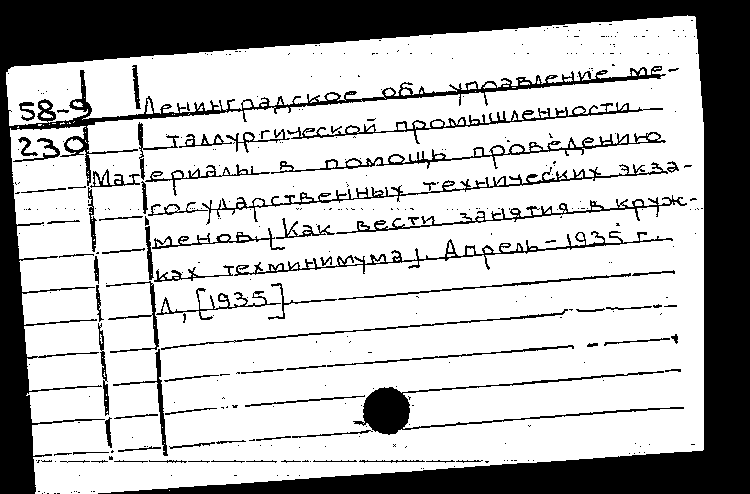 58-9 Ленинградское обл. управление ме-
230 таллургической промышленности.
Материалы в помощь проведению
государственных технических экза-
менов. [Как вести занятия в круж-
ках техминимума]. Апрель-1935 г.
Л., [1935].